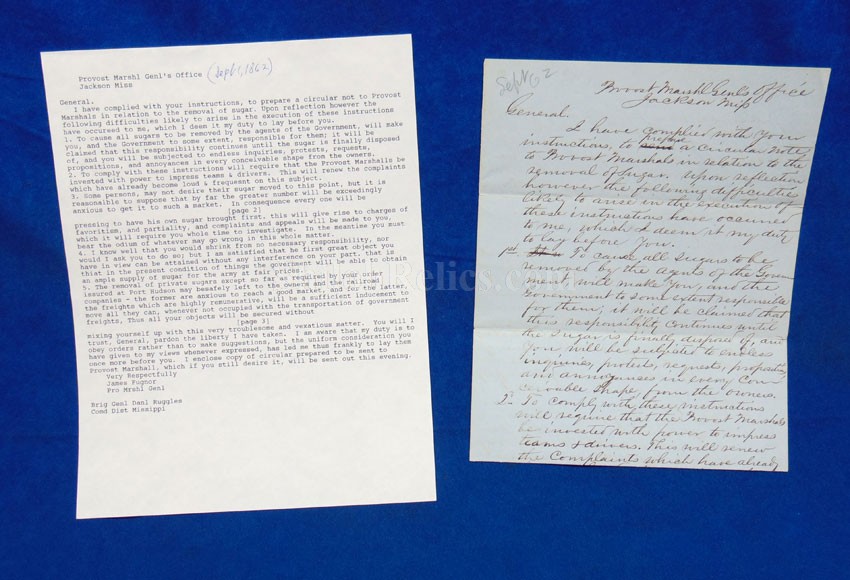 Provost Marshl Genl's Office (Sept 1, 1862)
Jackson Miss
General.
I have complied with your instructions, to prepare a circular not to Provost
Marshals in relation to the removal of sugar. Upon reflection however the
following difficulties likely to arise in the execution of these instructions
have occureed to me, which I deem it my duty to lay before you.
1. To cause all sugars to be removed by the agents of the Government, will make
you, and the Government to some extent, responsible for them; it will be
claimed that this responsibility continues until the sugar is finally disposed
of, and you will be subjected to endless enquiries, protests, requests,
propositions, and annoyances in every conceivable shape from the owners.
2. To comply with these instructions will require that the Provost Marshals be
invested with power to impress teams & drivers. This will renew the complaints
which have already become loud & frequesnt on this subject.
3. Some persons, may not desire their sugar moved to this point, but it is
reasonable to suppose that by far the greater number will be exceedingly
anxious to get it to such a market. In consequence every one will be
[page 2]
pressing to have his own sugar brought first, this will give rise to charges of
favoritism, and partiality, and complaints and appeals will be made to you,
which it will require you whole time to investigate. In the meantime you must
bear the odium of whatever may go wrong in this whole matter.
4. I know well that you would shrink from no necessary responsibility, nor
would I ask you to do so; but I am satisfied that he first great object you
have in view can be attained without any interference on your part, that is
thiat in the present condition of things the government will be able to obtain
an ample supply of sugar for the army at fair prices.
5. The removal of private sugars except so far as required by your order
issured at Port Hudson may besafely be left to the owners and the railroad
companies - the former are anxious to reach a good market, and for the latter,
the freights which are highly remunerative, will be a sufficient inducement to
move all they can, whenever not occupied with the transportation of government
freights, Thus all your objects will be secured without
[page 3]
mixing yourself up with this very troublesome and vexatious matter. You will I
trust, General, pardon the liberty I have taken. I am aware that my duty is to
obey orders rather than to make suggestions, but the uniform consideration you
have given to my views whenever expressed, has led me thus frankly to lay them
once more before you. I enclose copy of circular prepared to be sent to
Provost Marshall, which if you still desire it, will be sent out this evening.
Very Respectfully
James Fugnor
Pro Mrshl Genl
Brig Genl Danl Ruggles
Comd Dist Missippi
Sept 62
Provost Marshl Genl's Office
Jackson Miss
General.
I have complied with your
instructions, to prepare a circular Note
to Provost Marshals in relation to the
removal of Sugar. Upon reflection
however the following difficulties
likely to arise in the execution of
these instructions have occurred
to me, which I deem it my duty
to lay before you.
1st To cause all sugars to be
removed by the agents of the Govern-
ment, will make you, and the
Government to some extent responsible
for them; it will be claimed that
this responsibility continues until
the Sugar is finally disposed of, and
you will be subjected to endless
inquiries, protests, requests, propositions
and annoyances in every con-
ceivable shape, from the owners.
2d To comply with these instructions
will require that the Provost Marshals
be invested with power to impress
teams & drivers. This will renew
the Complaints which have already
Relics.com